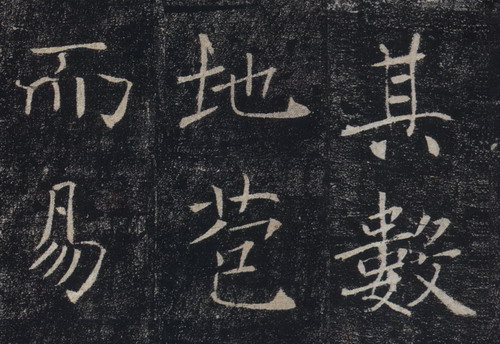 其數
地苞
而易